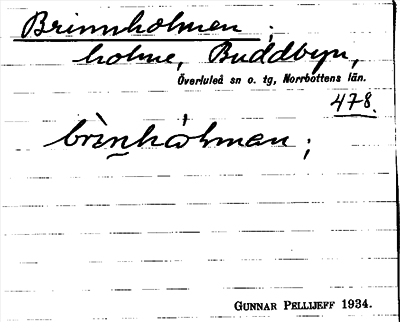 Brinnholmen ;
holme, Buddbyn,
Överluleå sn o. tg, Norrbottens län.
478.
brìnhólman ;
GUNNAR PELLIJEFF 1934.